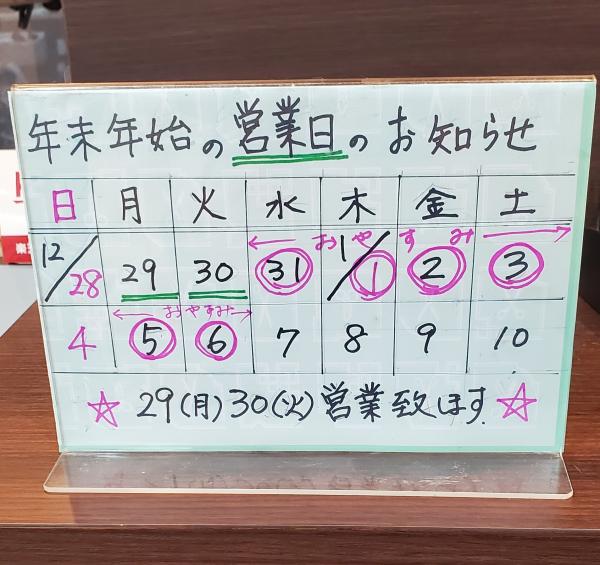 年末年始の営業日のお知らせ
日 月 火 水 木 金 土
おやすみ
12/28 29 30 31 1/1 2 3
おやすみ
4 5 6 7 8 9 10
☆ 29(月)30(火)営業致します ☆